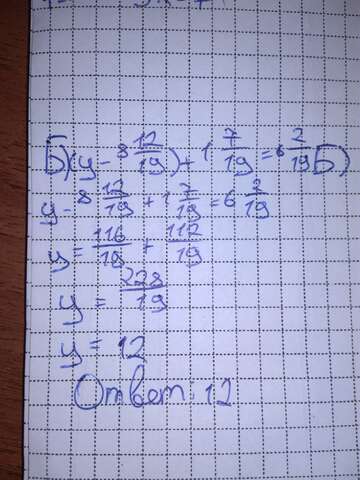 Б)(y - 8 12/19) + 1 7/19 = 6 2/19 Б)
y - 8 12/19 + 1 7/19 = 6 2/19
y = 116/19 + 112/19
y = 228/19
y = 12
Ответ: 12